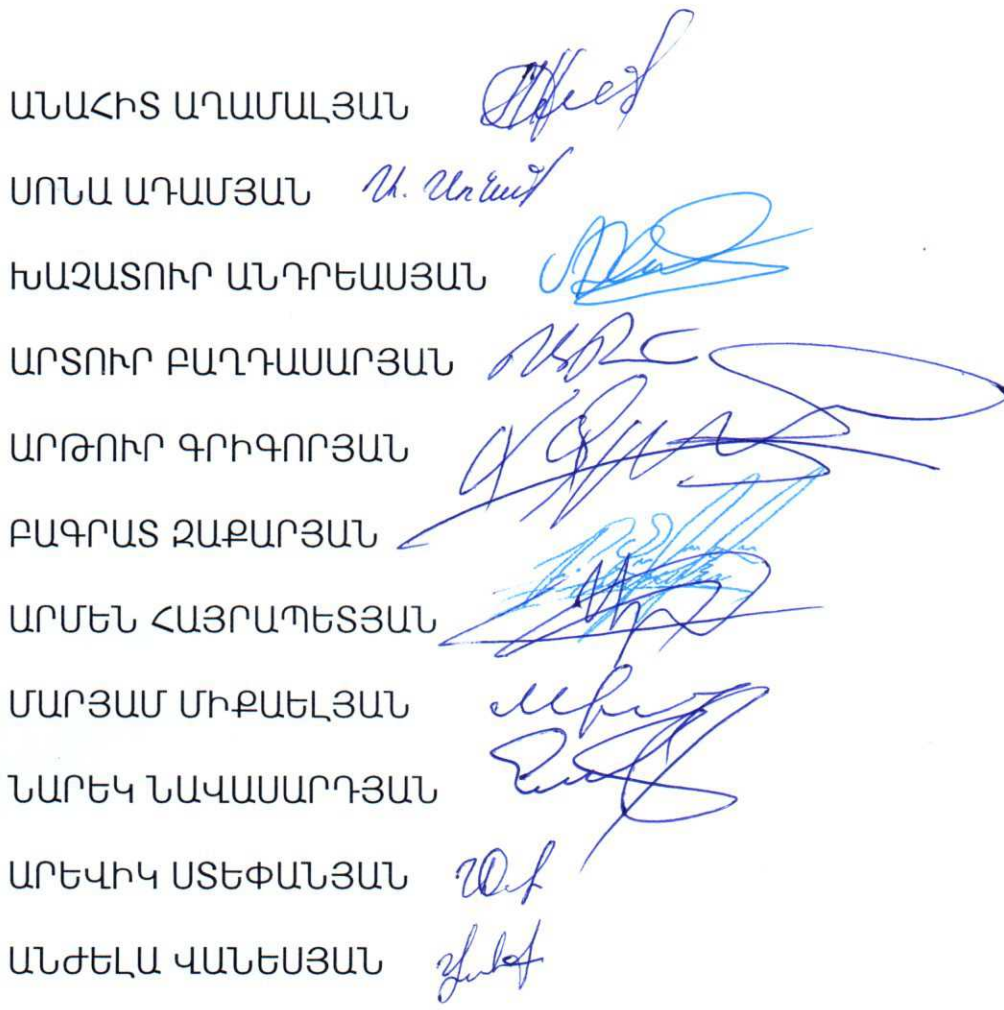 ԱՆԱՀԻՏ ԱՂԱՄԱԼՅԱՆ
ՍՈՆԱ ԱԴԱՄՅԱՆ
ԽԱՉԱՏՈՒՐ ԱՆԴՐԵԱՍՅԱՆ
ԱՐՏՈՒՐ ԲԱՂԴԱՍԱՐՅԱՆ
ԱՐԹՈՒՐ ԳՐԻԳՈՐՅԱՆ
ԲԱԳՐԱՏ ԶԱՔԱՐՅԱՆ
ԱՐՄԵՆ ՀԱՅՐԱՊԵՏՅԱՆ
ՄԱՐՅԱՄ ՄԻՔԱԵԼՅԱՆ
ՆԱՐԵԿ ՆԱՎԱՍԱՐԴՅԱՆ
ԱՐԵՎԻԿ ՍՏԵՓԱՆՅԱՆ
ԱՆԺԵԼԱ ՎԱՆԵՍՅԱՆ